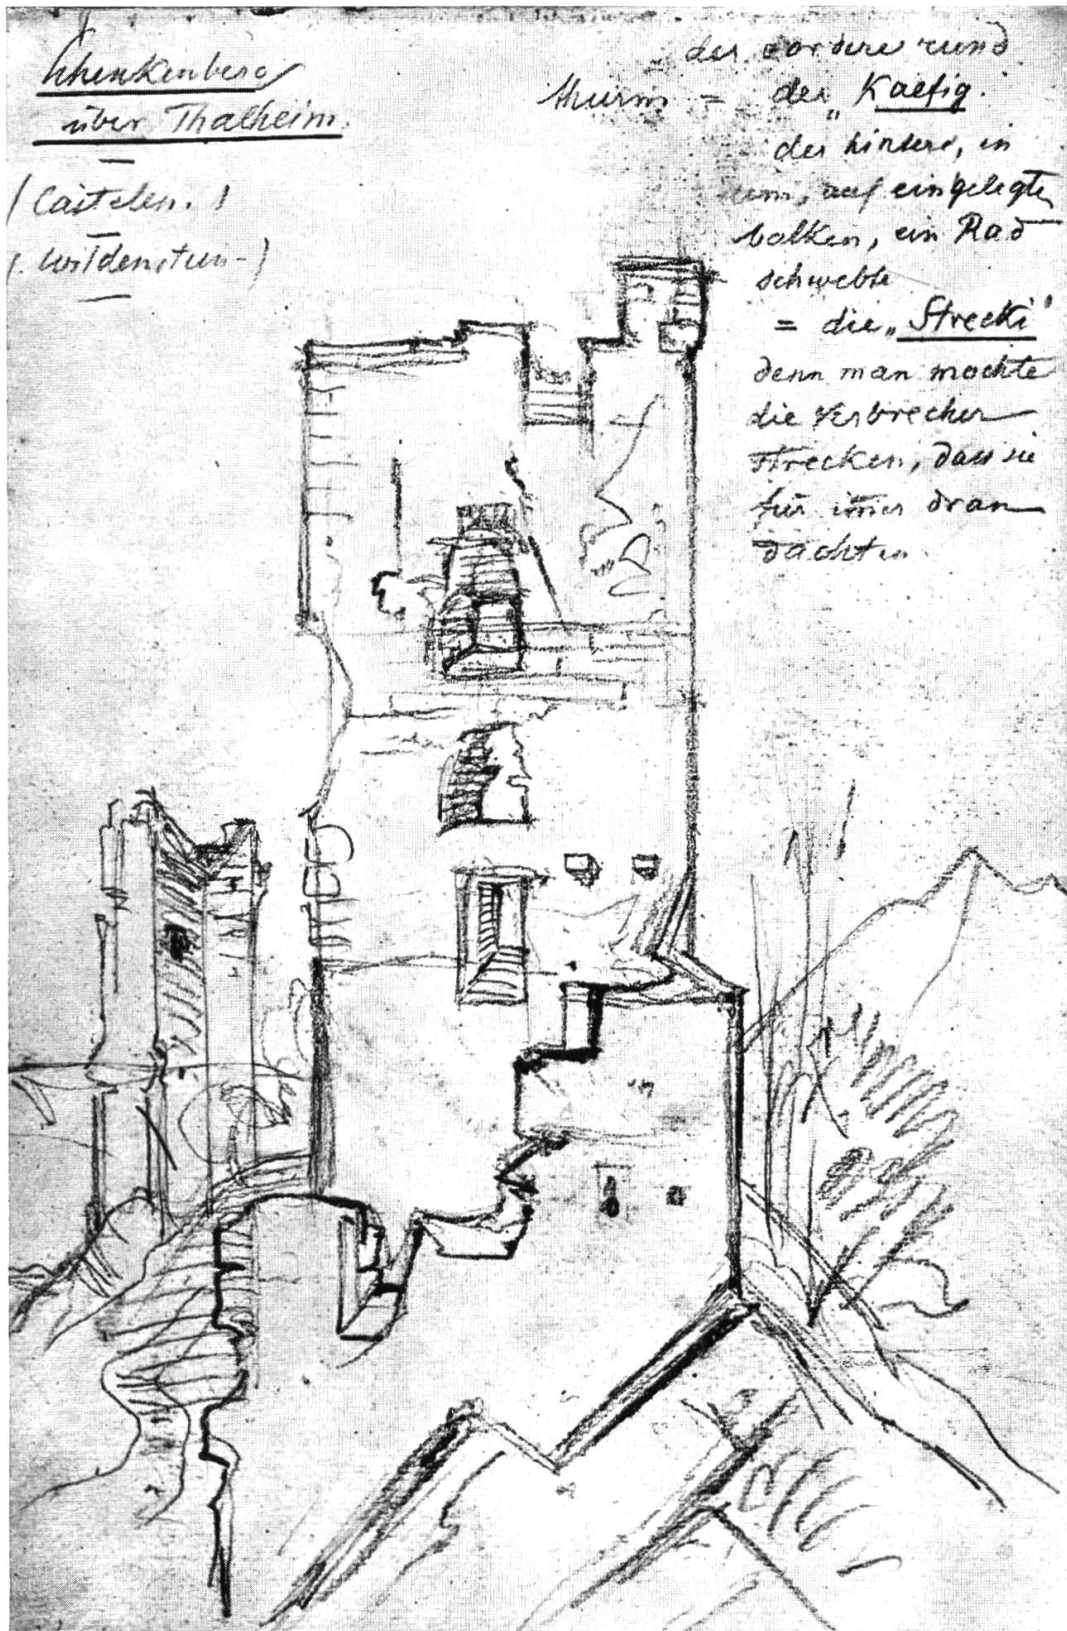 Schenkenberg
über Thalheim.
(Castelen.)
(Wildenstein-)
der vordere rund
thurm = der „Kaefig.
der hintere, in
auf eingelegte
balken, ein Rad
schwebte
= die „Strecki“
denn man mochte
die Verbrecher
strecken, dass sie
für im̄er dran
dachten